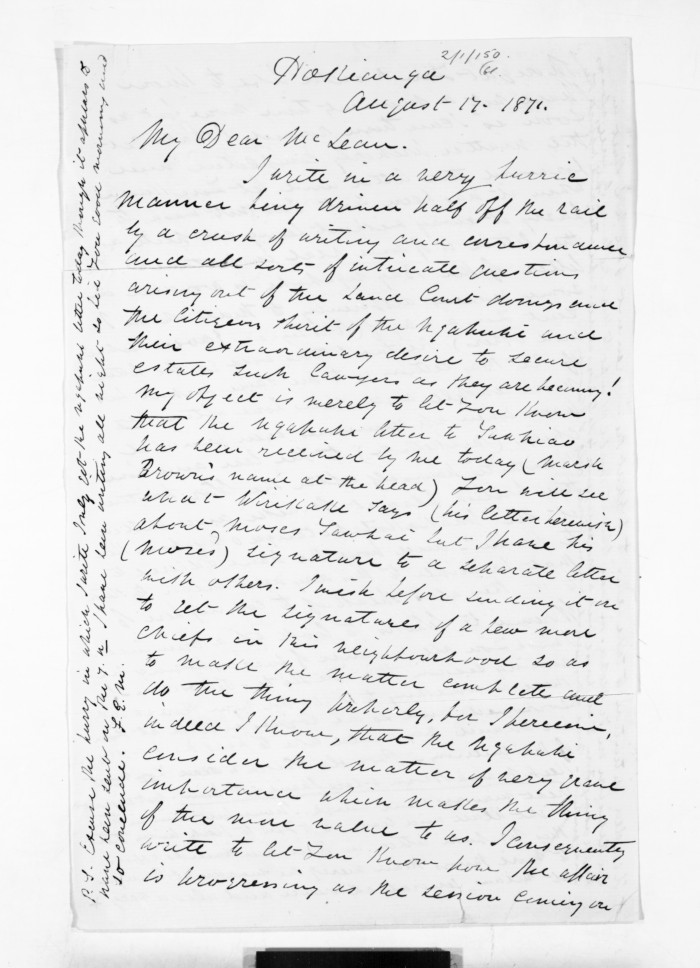 2/1/150.
Hokianga
August 17. 1871.
My Dear McLean.
I write in a very hurric
manner being driven half off the rail
by a crush of writing and correspondence
and all sorts of intricate questions
arising out of the Land Court doings and
the litigeous spirit of the Ngapuhi and
their extraordinary desire to secure
estates such lawyers as they are becoming!
My object is merely to let you know
that the Ngapuhi letter to Tawhiao
has been received by me today (Marsh
Brown's name at the head) You will see
what Wirikake says (his letter herewith)
about Moses Tawhai but I have his
(Moses) signature to a separate letter
with others. I wish before sending it on
to get the signatures of a few more
chiefs in this neighbourhood so as
to make the matter complete and
do the thing properly, for I perceive,
indeed I know, that the Ngapuhi
consider the matter of very grave
importance which makes the thing
of the more value to us. I consequently
write to let you know how the affair
is progressing as the session coming on
P.S. Excuse the hurry in which I write I only got the Ngapuhi letter today though it appears to
have been sent on the 7.th I have been writing all night so bid you good morning and
so conclude. F.E.M.